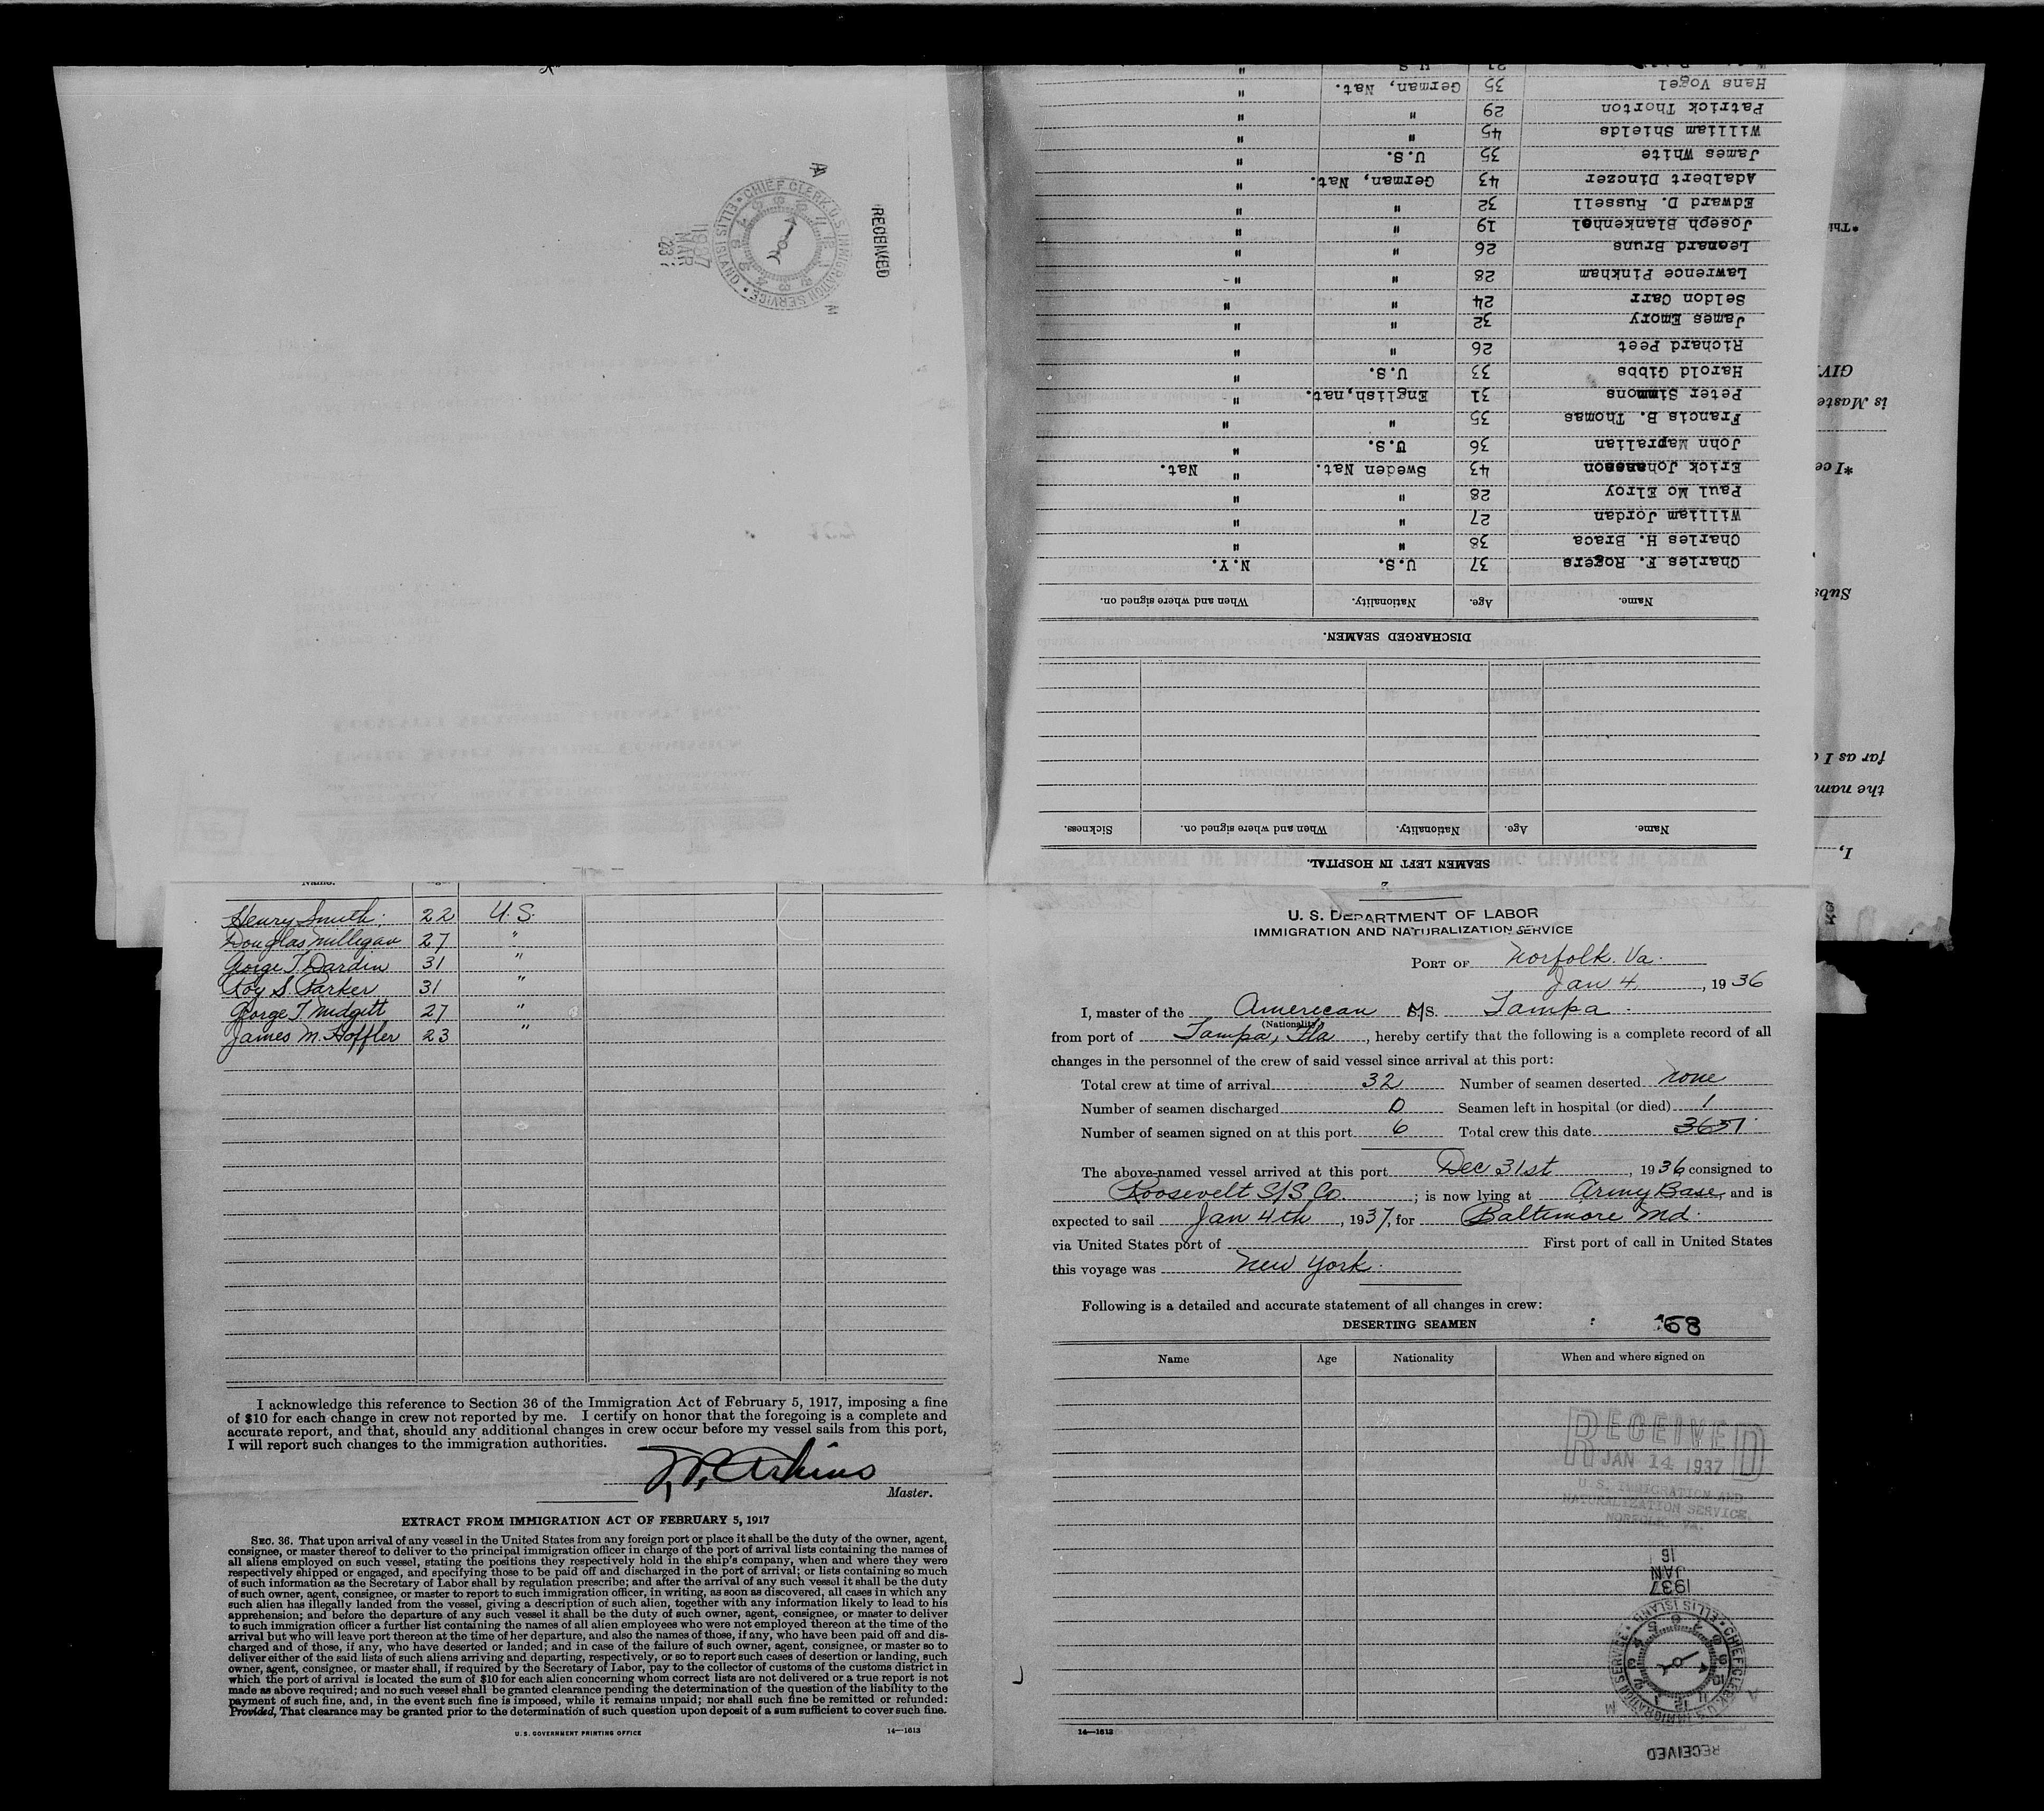 SEAMEN LEFT IN HOSPITAL.
Name. Age. Nationality. When and where signed on. Sickness.
DISCHARGED SEAMEN.
Name. Age. Nationality. When and where signed on.
Charles F. Rogers 37 U.S. N.Y.
Charles H. Braca 38 " "
William Jordan 27 " "
Paul Mc Elroy 28 " "
Erick Johansson 43 Sweden Nat. " Nat.
John Mapralian 36 U.S. "
Francis B. Thomas 35 " "
Peter Simmons 31 English,nat. "
Harold Gibbs 33 U.S. "
Richard Peet 26 " "
James Emory 32 " "
Seldon Carr 24 " "
Lawrence Pinkham 28 " "
Leonard Bruns 26 " "
Joseph Blankenhol 19 " "
Edward D. Russell 32 " "
Adalbert Dinczer 43 German, Nat. "
James White 35 U.S. "
William Shields 45 " "
Patrick Thorton 29 " "
Hans Vogel 35 German, Nat. "
21 U.S. "
I,
the nam
far as I
Subs
*I ce
is Maste
GIV
*Thi
RECEIVED
CHIEF CLERK, U.S. IMMIGRATION SERVICE • ELLIS ISLAND •
1937
MAR
23
A
M
Henry Smith. 22 U.S.
Douglas Milligan 27 "
George T. Dardin 31 "
Roy S. Parker 31 "
George T Midgett 27 "
James M. Hoffler 23 "
I acknowledge this reference to Section 36 of the Immigration Act of February 5, 1917, imposing a fine
of $10 for each change in crew not reported by me. I certify on honor that the foregoing is a complete and
accurate report, and that, should any additional changes in crew occur before my vessel sails from this port,
I will report such changes to the immigration authorities.
Master.
EXTRACT FROM IMMIGRATION ACT OF FEBRUARY 5, 1917
SEC. 36. That upon arrival of any vessel in the United States from any foreign port or place it shall be the duty of the owner, agent,
consignee, or master thereof to deliver to the principal immigration officer in charge of the port of arrival lists containing the names of
all aliens employed on such vessel, stating the positions they respectively hold in the ship's company, when and where they were
respectively shipped or engaged, and specifying those to be paid off and discharged in the port of arrival; or lists containing so much
of such information as the Secretary of Labor shall by regulation prescribe; and after the arrival of any such vessel it shall be the duty
of such owner, agent, consignee, or master to report to such immigration officer, in writing, as soon as discovered, all cases in which any
such alien has illegally landed from the vessel, giving a description of such alien, together with any information likely to lead to his
apprehension; and before the departure of any such vessel it shall be the duty of such owner, agent, consignee, or master to deliver
to such immigration officer a further list containing the names of all alien employees who were not employed thereon at the time of the
arrival but who will leave port thereon at the time of her departure, and also the names of those, if any, who have been paid off and dis-
charged and of those, if any, who have deserted or landed; and in case of the failure of such owner, agent, consignee, or master so to
deliver either of the said lists of such aliens arriving and departing, respectively, or so to report such cases of desertion or landing, such
owner, agent, consignee, or master shall, if required by the Secretary of Labor, pay to the collector of customs of the customs district in
which the port of arrival is located the sum of $10 for each alien concerning whom correct lists are not delivered or a true report is not
made as above required; and no such vessel shall be granted clearance pending the determination of the question of the liability to the
payment of such fine, and, in the event such fine is imposed, while it remains unpaid; nor shall such fine be remitted or refunded:
Provided, That clearance may be granted prior to the determination of such question upon deposit of a sum sufficient to cover such fine.
U.S. GOVERNMENT PRINTING OFFICE 14—1613
U. S. DEPARTMENT OF LABOR
IMMIGRATION AND NATURALIZATION SERVICE
PORT OF Norfolk. Va.
Jan 4, 1936
I, master of the American M/S. Tampa.
(Nationality)
from port of Tampa, Fla, hereby certify that the following is a complete record of all
changes in the personnel of the crew of said vessel since arrival at this port:
Total crew at time of arrival 32 Number of seamen deserted none
Number of seamen discharged 0 Seamen left in hospital (or died) 1
Number of seamen signed on at this port 6 Total crew this date
The above-named vessel arrived at this port Dec 31st, 1936 consigned to
Roosevelt S/S Co. ; is now lying at Army Base, and is
expected to sail Jan 4th, 1937, for Baltimore Md.
via United States port of First port of call in United States
this voyage was New York.
Following is a detailed and accurate statement of all changes in crew:
DESERTING SEAMEN 68
Name Age Nationality When and where signed on
RECEIVED
JAN 14 1937
U. S. IMMIGRATION AND
NATURALIZATION SERVICE.
NORFOLK, VA.
16
JAN
1937
CHIEF CLERK, U.S. IMMIGRATION SERVICE • ELLIS ISLAND •
A
M
RECEIVED
14—1613